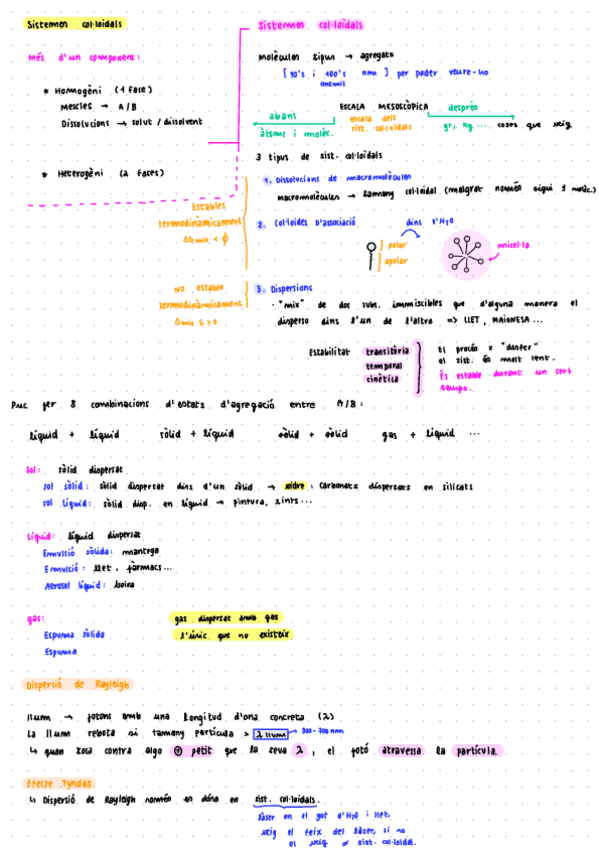 Sistemes col·loidals
Més d'un component:
* Homogèni (1 fase)
Mescles → A/B
Dissolucions → solut / dissolvent
* Heterogèni (2 fases)
Sistemes col·loidals
molècules tipus → agregats
[ 10's i 100's nm ] per poder veure-ho
ESCALA MESOSCÒPICA
abans
escala dels
sist. col·loidals
després
àtoms i molèc.
gr, kg ... coses que veig
3 tipus de sist. col·loidals
1. Dissolucions de macromolècules
macromolècules → tamany col·loidal (malgrat només sigui 1 molèc.)
Estables
termodinàmicament
ΔG mix < 0
2. Col·loides D'associació
dins d'H₂O
polar
apolar
micel·la
NO estable
termodinàmicament
Δmix G > 0
3. Dispersions
· "mix" de dos subs. immiscibles que d'alguna manera el
disperso dins l'un de l'altre => LLET, MAIONESA ...
Estabilitat
transitòria
temporal
cinètica
El procés x "desfer"
el sist. és molt lent.
És estable durant un cert
temps.
Puc fer 8 combinacions d'estats d'agregació entre A/B:
líquid + líquid sòlid + líquid sòlid + sòlid gas + líquid ...
Sol: sòlid dispersat
sol sòlid: sòlid dispersat dins d'un sòlid → vidre: carbonats dispersats en silicats
sol líquid: sòlid disp. en líquid → pintura, tints ...
Líquid: líquid dispersat
Emulsió sòlida: mantega
Emulsió: llet, fàrmacs ...
Aerosol líquid: boira
gas:
Espuma sòlida
Espuma
gas dispersat amb gas
l'únic que no existeix
Dispersió de Rayleigh
llum → fotons amb una longitud d'ona concreta (λ)
La llum rebota si tamany partícula > λ llum → 300-700 nm
↳ quan xoca contra algo ⊕ petit que la seva λ, el fotó atravessa la partícula.
Efecte Tyndall
↳ Dispersió de Rayleigh només en dóna en sist. col·loidals.
làser en el got d'H₂O i llet,
veig el feix del làser, si no
el veig ≠ sist. col·loidal.